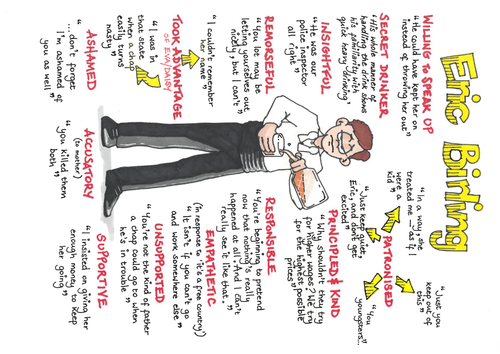 Eric Birling
WILLING TO SPEAK UP
"He could have kept her on
instead of throwing her out"
SECRET DRINKER
"(His whole manner of
handling the drink shows
his familiarity with
quick heavy drinking)"
INSIGHTFUL
"He was our
police inspector
all right"
REMORSEFUL
"You lot may be
letting yourselves out
nicely, but I can't"
"I couldn't remember
her name"
TOOK ADVANTAGE
OF EVA/DAISY
"I was in
that state
when a chap
easily turns
nasty"
ASHAMED
"...don't forget
I'm ashamed of
you as well"
"In a way she
treated me - as if I
were a
kid"
"Just you
keep out of
this"
PATRONISED
"Just keep quiet,
Eric, and don't get
excited"
"You
youngsters..."
PRINCIPLED & KIND
"Why shouldn't they try
for higher wages? We try
for the highest possible
prices"
RESPONSIBLE
"You're beginning to pretend
now that nothing's really
happened at all. And I can't
really see it like that."
EMPATHETIC
(In response to 'it's a free country')
"It isn't if you can't go
and work somewhere else"
UNSUPPORTED
"You're not the kind of father
a chap could go to when
he's in trouble"
ACCUSATORY
(to mother)
"you killed them
both"
SUPPORTIVE
"I insisted on giving her
enough money to keep
her going"